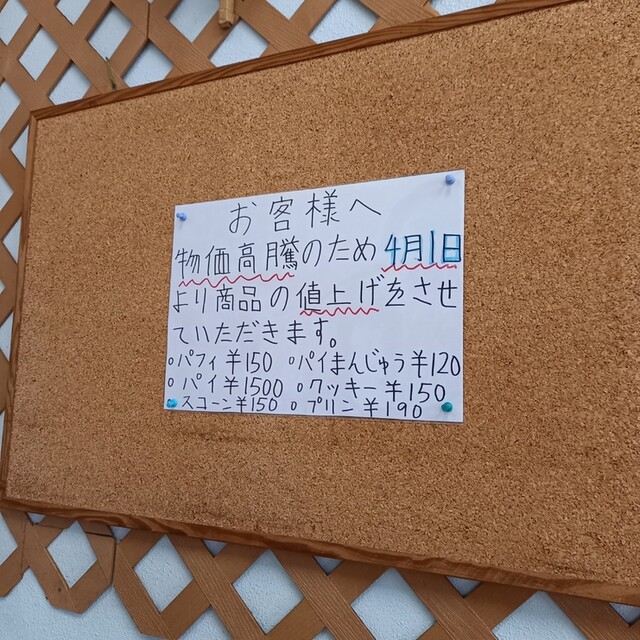 お客様へ
物価高騰のため4月1日
より商品の値上げをさせ
ていただきます。
○パフィ¥150 ○パイまんじゅう¥120
○パイ¥1500 ○クッキー¥150
○スコーン¥150 ○プリン¥190